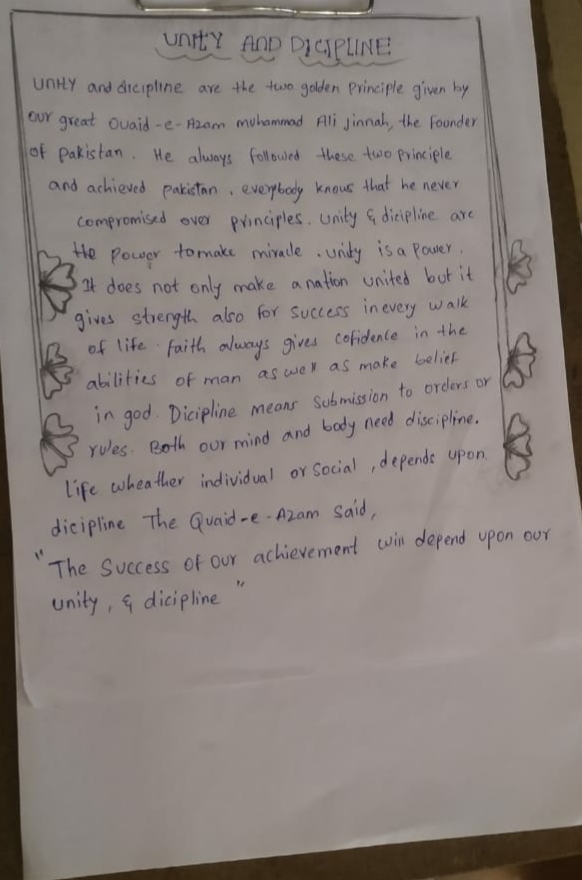 UNITY AND DICIPLINE
UNITY and dicipline are the two golden Principle given by
our great Quaid-e-Azam muhammad Ali Jinnah, the Founder
of Pakistan. He always followed these two Principle
and achieved pakistan. everybody knows that he never
compromised over principles. Unity & dicipline are
the Power tomake miracle. unity is a Power.
It does not only make a nation united but it
gives strength also for success in every walk
of life. faith always gives cofidence in the
abilities of man as well as make belief
in god. Dicipline means Submission to orders or
rules. Both our mind and body need discipline.
Life wheather individual or social, depends upon
dicipline The Quaid-e-Azam said,
"The Success of our achievement will depend upon our
unity, & dicipline"